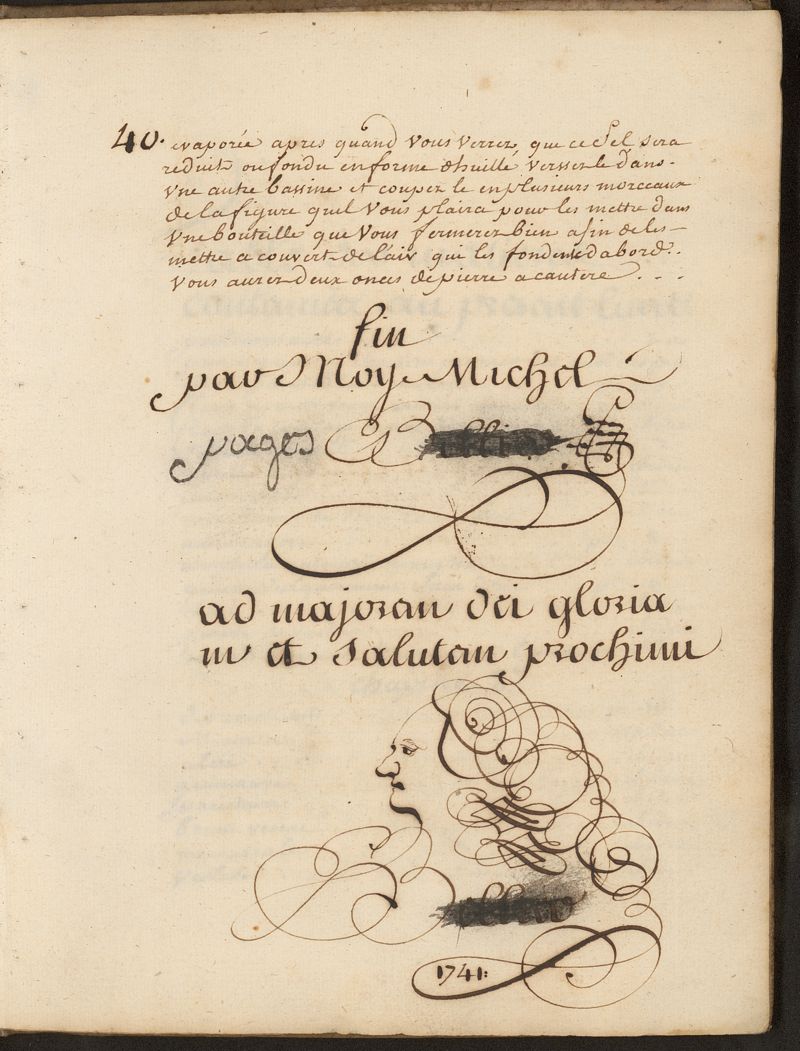 40. evaporée apres quand vous verrez, que ce Sel sera
reduit ou fondu en forme dhuille versser le dans
vne autre bassine et couper le en plusieurs morceaux
de la figure quil vous plaira pour les mettre dans
vne bouteille que vous fermerez bien afin de les
mettre a couvert de lair qui les fondent dabord.
vous aurez deux onces de pierre a cautere . . .
fin
par Moy Michel
pages
ad majoran dei gloria
m et salutan prochimi
1741: